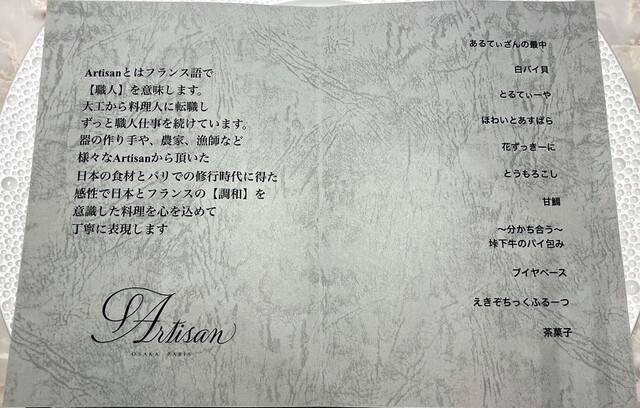 Artisanとはフランス語で
【職人】を意味します。
大工から料理人に転職し
ずっと職人仕事を続けています。
器の作り手や、農家、漁師など
様々なArtisanから頂いた
日本の食材とパリでの修行時代に得た
感性で日本とフランスの【調和】を
意識した料理を心を込めて
丁寧に表現します
Artisan
OSAKA PARIS
あるてぃざんの最中
白バイ貝
とるてぃーや
ほわいとあすぱら
花ずっきーに
とうもろこし
甘鯛
～分かち合う～
垰下牛のパイ包み
ブイヤベース
えきぞちっくふるーつ
茶菓子